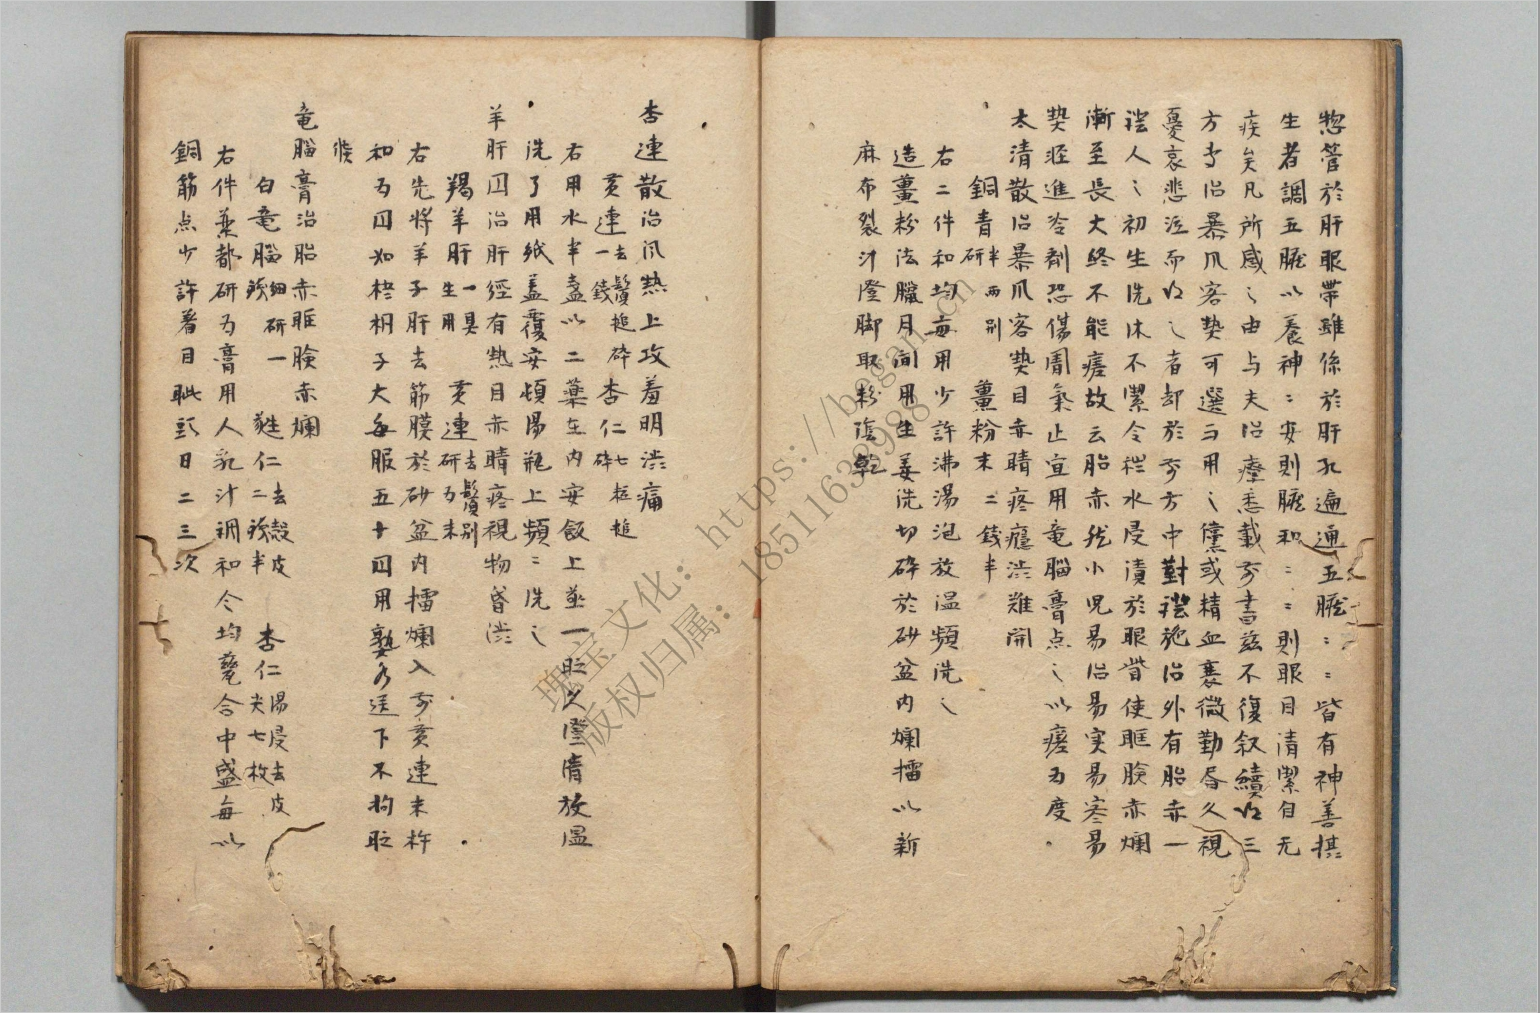 惣管於肝眼帶雖係於肝孔遍通五臓〻〻皆有神善摂
生者調五臓以養神〻安則臓和〻〻則眼目清潔自无
疾矣凡所感之由与夫治療悉載前書茲不復叙續以三
方専治暴風客熱可選而用之儻或精血衰微勤昏久視
憂哀悲泣而以之者却於前方中對證施治外有胎赤一
證人之初生洗沐不潔令穢水浸漬於眼眥使眶瞼赤爛
漸至長大終不能瘥故云胎赤然小児易治易実易寒易
熱軽進冷剤恐傷胃氣止宜用竜腦膏点之以瘥為度
太清散治暴風客熱目赤睛疼癮渋難開
銅青半両別研 薑粉末二錢半
右二件和均毎用少許沸湯泡放温頻洗之
造薑粉法臘月間用生姜洗切碎於砂盆内爛擂以新
麻布裂汁澄脚取粉陰乾
杏連散治風熱上攻羞明渋痛
黄連去鬚槌碎一錢 杏仁七粒槌碎
右用水半盞以二藥在内安飯上蒸一時久澄清放温
洗了用紙盖覆安頓湯瓶上頻〻洗之
羊肝円治肝經有熱目赤睛疼視物昏渋
羯羊肝一具生用 黄連去鬚別研為末
右先將羊子肝去筋膜於砂盆内擂爛入前黄連末杵
和為円如梧桐子大毎服五十円用熟水送下不拘時
候
竜腦膏治胎赤眶瞼赤爛
白竜腦細研一銖 蕤仁去殼皮二銖半 杏仁湯浸去皮尖七枚
右件藥都研為膏用人乳汁調和令均甆合中盛毎以
銅筋点少許着目眦頭日二三次
瑰宝文化: https://began.cn
版权归属: 18511638988